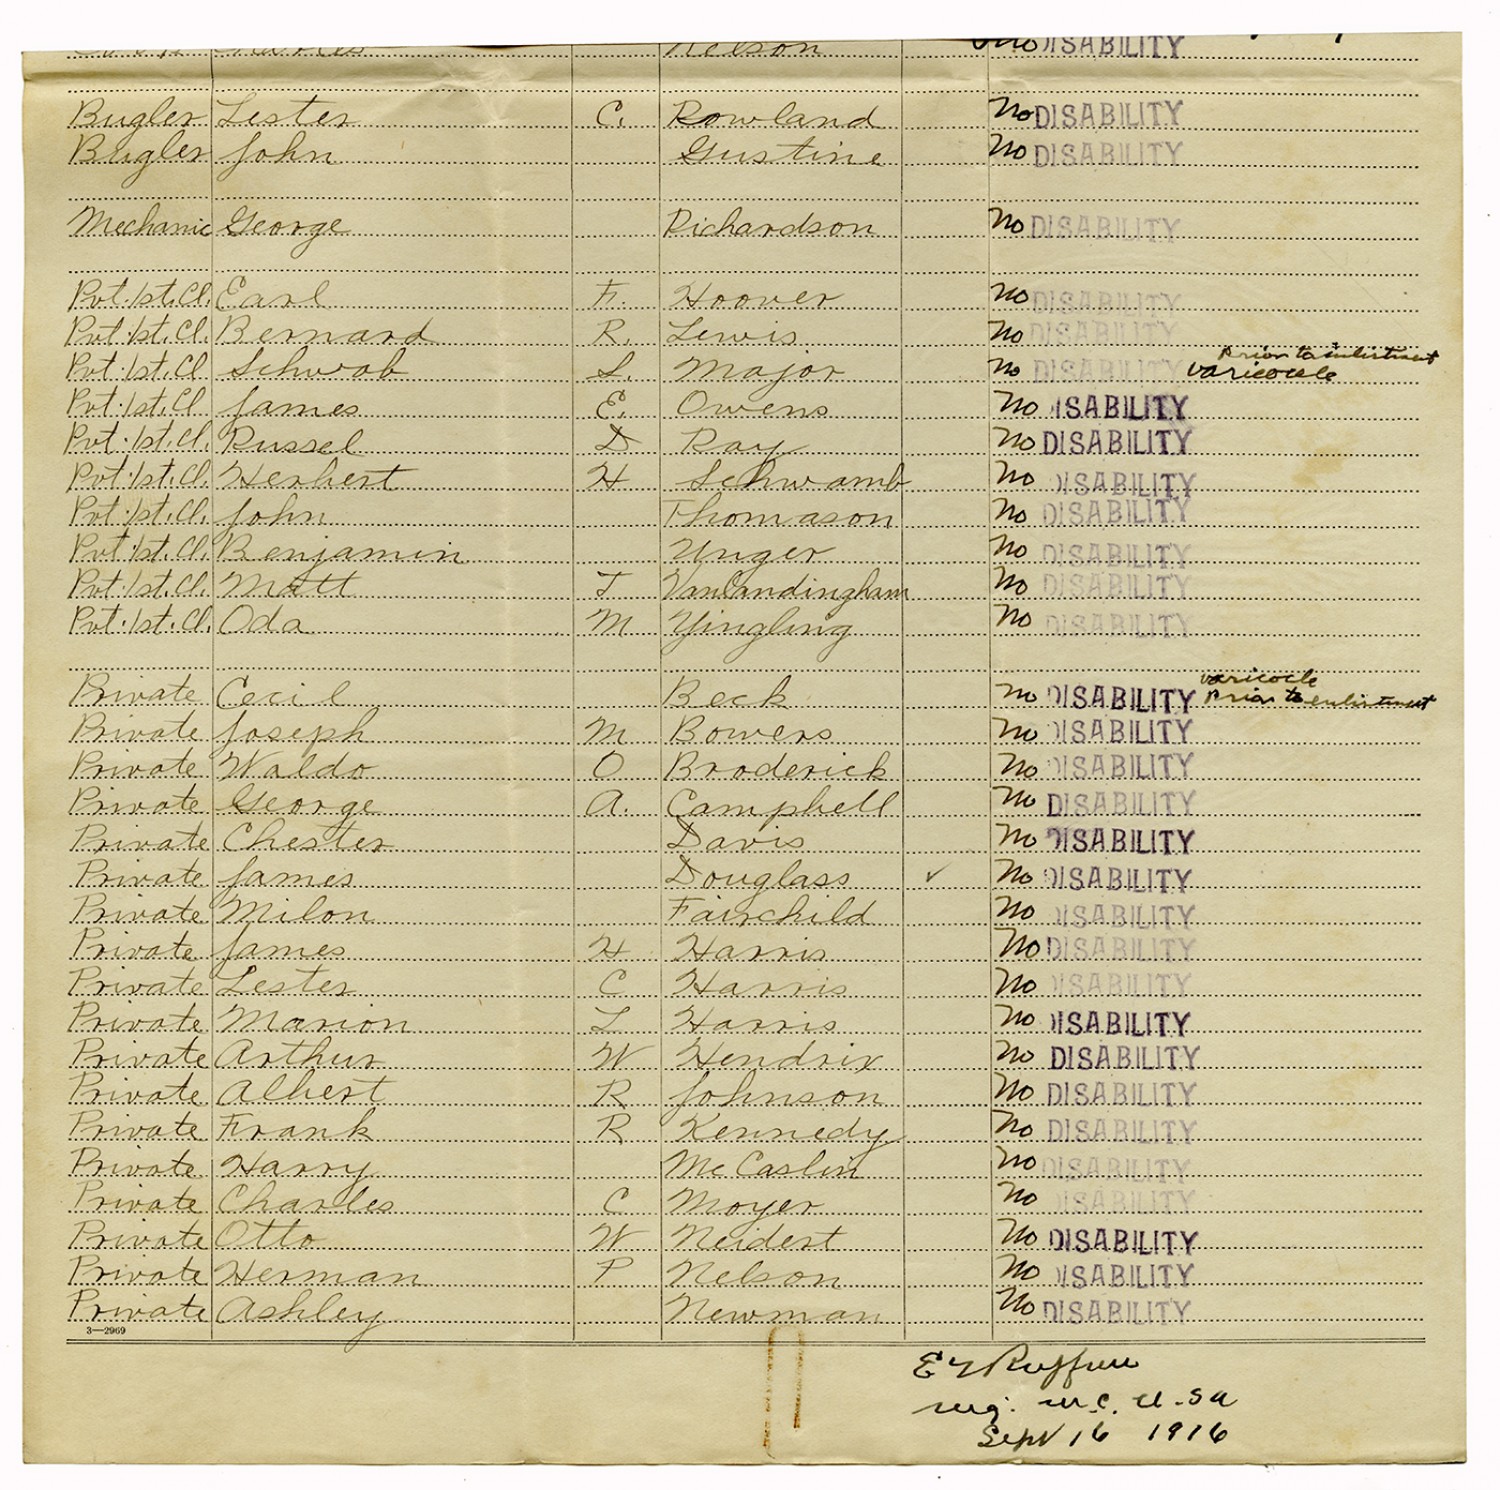 Nelson No DISABILITY
Bugler Lester C. Rowland No DISABILITY
Bugler John Gustine No DISABILITY
Mechanic George Richardson No DISABILITY
Pvt. 1st. Cl. Earl F. Hoover No DISABILITY
Pvt. 1st. Cl. Bernard R. Lewis No DISABILITY
prior to enlistment
Pvt. 1st. Cl Schwab L. Major No DISABILITY varicocele
Pvt. 1st. Cl James E. Owens No DISABILITY
Pvt. 1st. Cl. Russel D Ray No DISABILITY
Pvt. 1st. Cl. Herbert H Schwamb No DISABILITY
Pvt. 1st. Cl. John Thomason No DISABILITY
Pvt. 1st. Cl. Benjamin Unger No DISABILITY
Pvt. 1st. Cl. Matt T VanLandingham No DISABILITY
Pvt. 1st. Cl. Oda M Yingling No DISABILITY
varicocle
Private Cecil Beck No DISABILITY prior to enlistment
Private Joseph M Bowers No DISABILITY
Private Waldo O Broderick No DISABILITY
Private George A. Campbell No DISABILITY
Private Chester Davis No DISABILITY
Private James Douglass ✓ No DISABILITY
Private Milon Fairchild No DISABILITY
Private James H Harris No DISABILITY
Private Lester C Harris No DISABILITY
Private Marion L Harris No DISABILITY
Private Arthur W Hendrix No DISABILITY
Private Albert R Johnson No DISABILITY
Private Frank R Kennedy No DISABILITY
Private Harry McCaslin No DISABILITY
Private Charles C Moyer No DISABILITY
Private Otto W Neidert No DISABILITY
Private Herman P Nelson No DISABILITY
Private Ashley Newman No DISABILITY
3—2969
E
M.C. U.S.A
Sept 16 1916